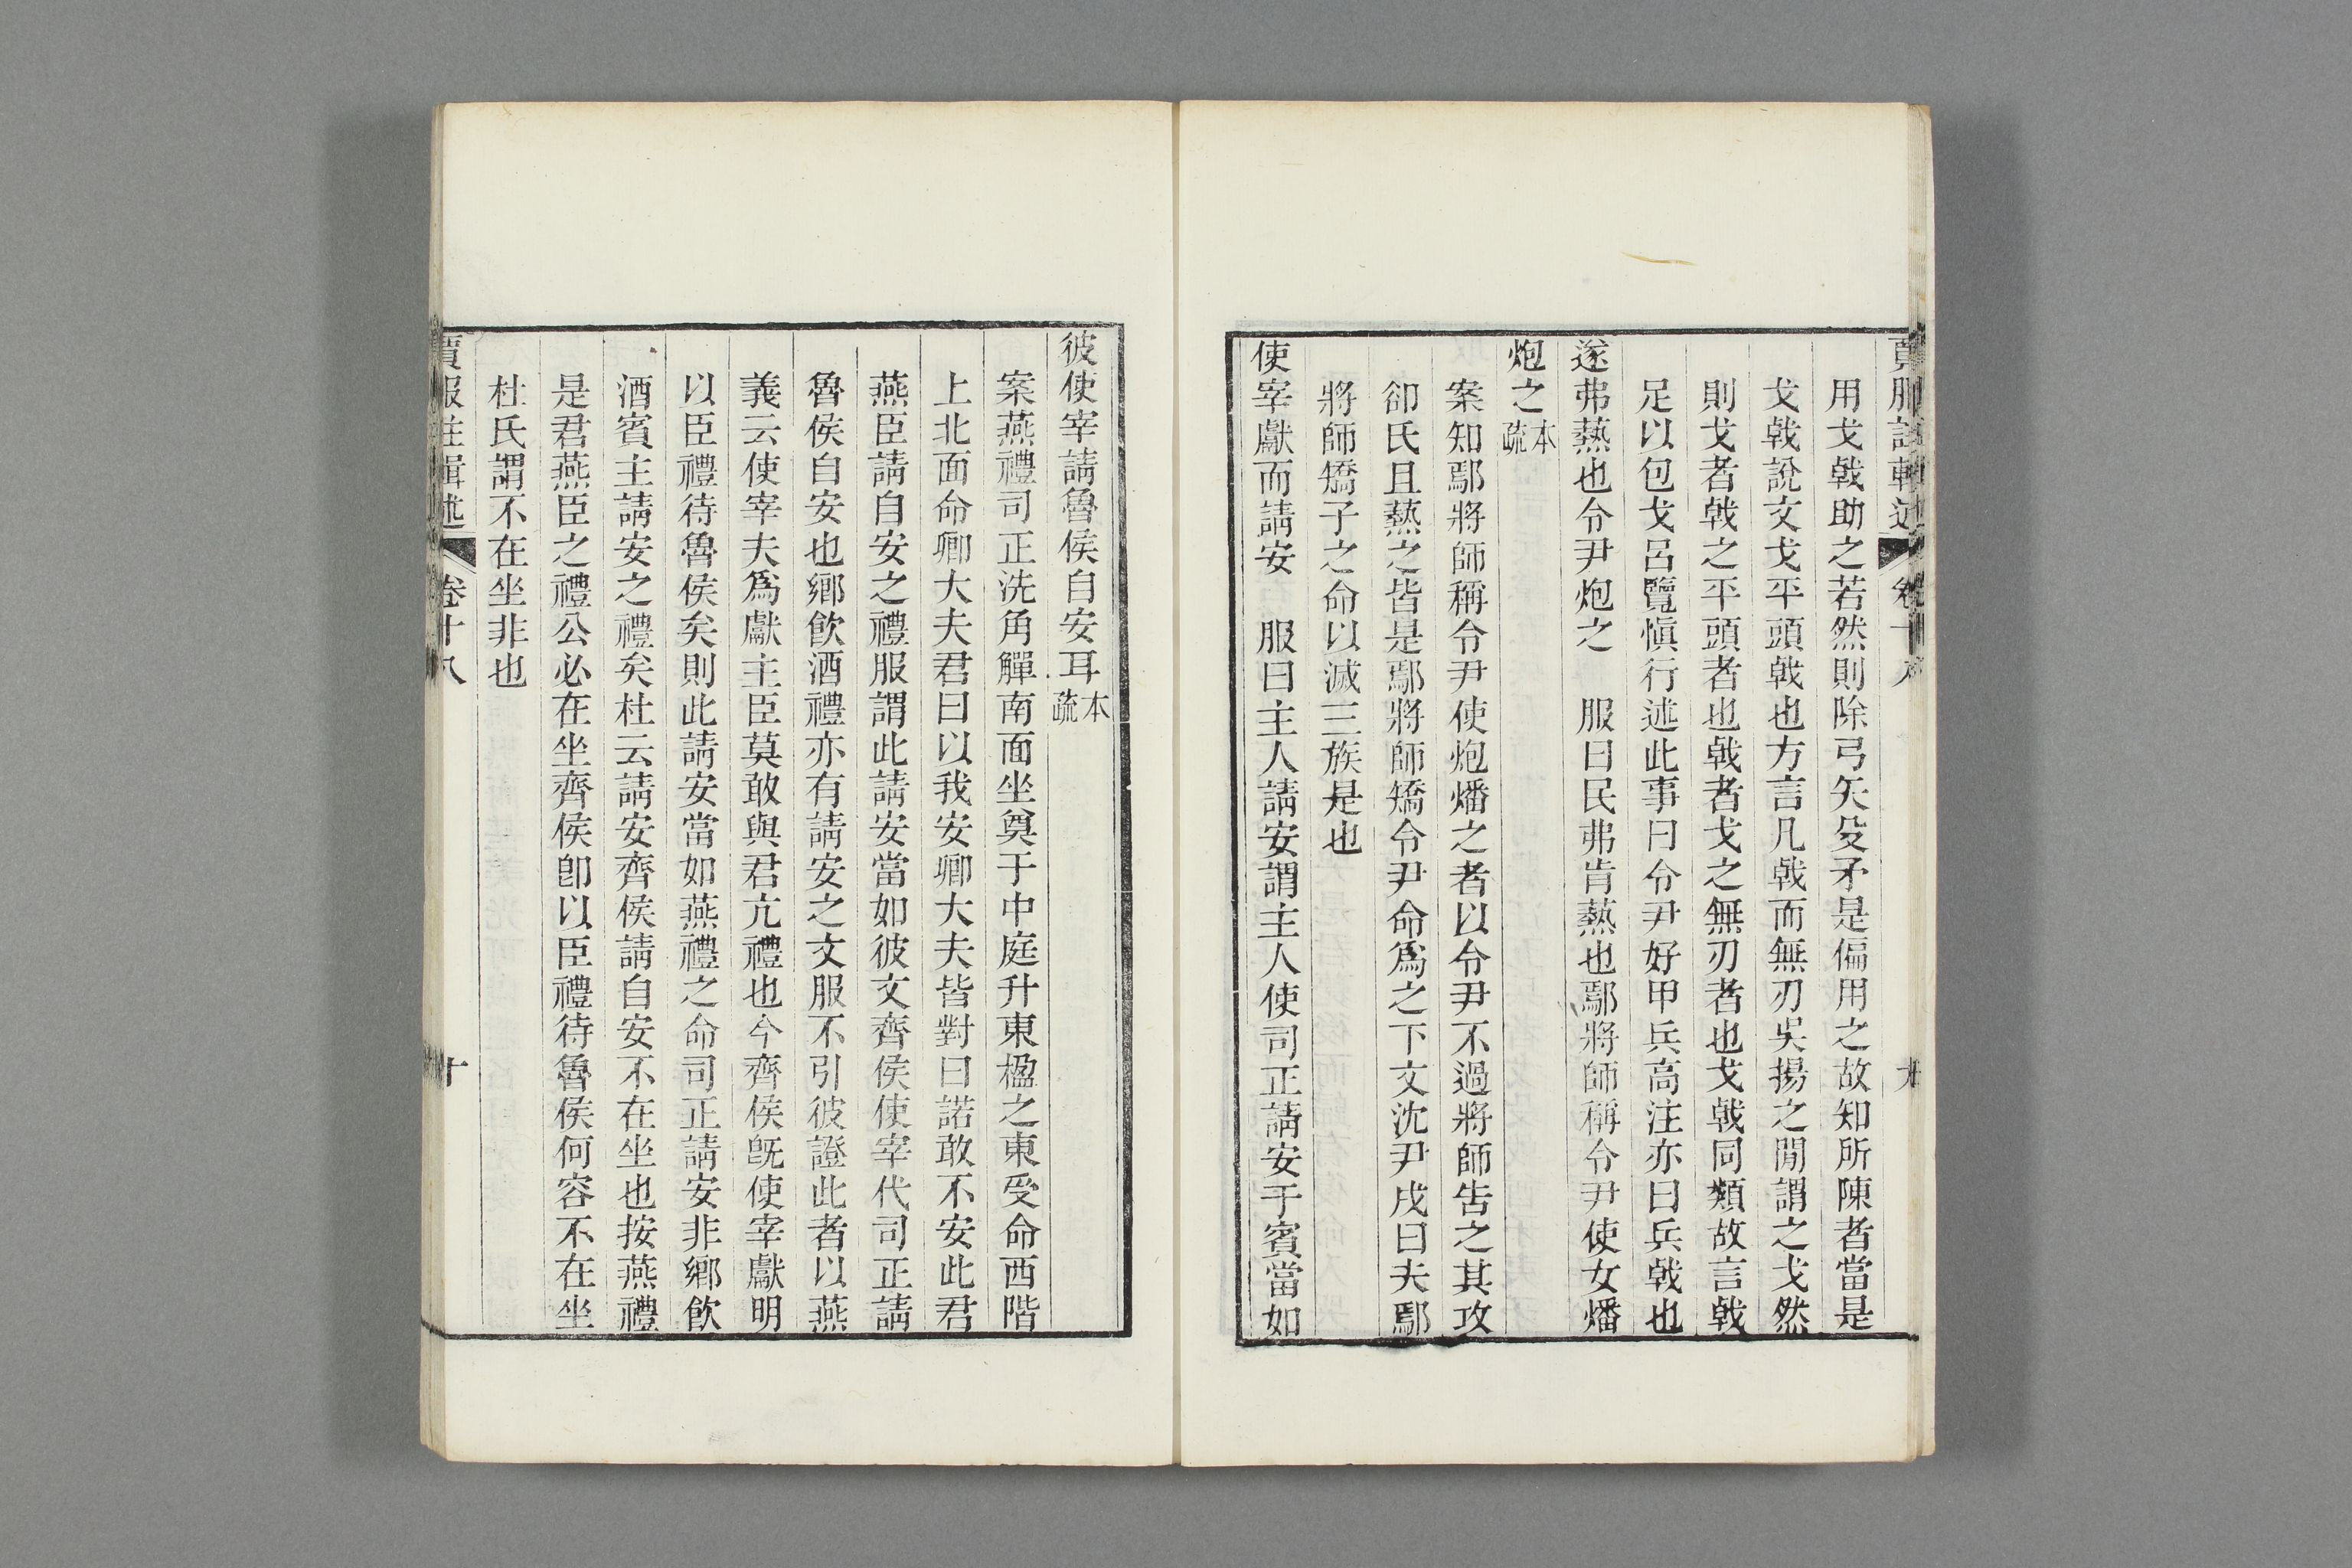 賈服註輯述 卷十八 九
用戈戟助之若然則除弓矢殳矛是偏用之故知所陳者當是
戈戟說文戈平頭戟也方言凡戟而無刃吳揚之閒謂之戈然
則戈者戟之平頭者也戟者戈之無刃者也戈戟同類故言戟
足以包戈呂覽愼行述此事曰令尹好甲兵高注亦曰兵戟也
遂弗爇也令尹炮之　服曰民弗肯爇也鄢將師稱令尹使女燔
炮之本疏
案知鄢將師稱令尹使炮燔之者以令尹不過將師告之其攻
郤氏且爇之皆是鄢將師矯令尹命爲之下文沈尹戌曰夫鄢
將師矯子之命以滅三族是也
使宰獻而請安　服曰主人請安謂主人使司正請安于賓當如
彼使宰請魯侯自安耳本疏
案燕禮司正洗角觶南面坐奠于中庭升東楹之東受命西階
上北面命卿大夫君曰以我安卿大夫皆對曰諾敢不安此君
燕臣請自安之禮服謂此請安當如彼文齊侯使宰代司正請
魯侯自安也鄉飮酒禮亦有請安之文服不引彼證此者以燕
義云使宰夫爲獻主臣莫敢與君亢禮也今齊侯旣使宰獻明
以臣禮待魯侯矣則此請安當如燕禮之命司正請安非鄉飮
酒賓主請安之禮矣杜云請安齊侯請自安不在坐也按燕禮
是君燕臣之禮公必在坐齊侯卽以臣禮待魯侯何容不在坐
杜氏謂不在坐非也
賈服註輯述 卷十八 十